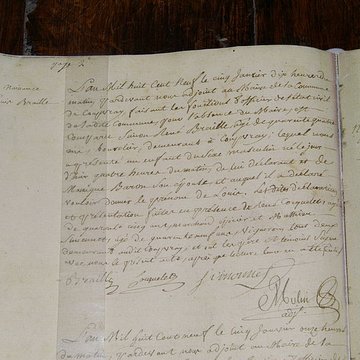 Naissance
Braille
L'an Mil huit Cent Neuf le cinq Janvier dix heures du
matin, pardevant nous adjoint au Maire de la Commune
de Coupvray, faisant les fonctions d'officier de l'état civil
de ladite Commune pour l'absence du Maire, est
Comparu Simon René Braille, agé de quarante quatre
ans, bourelier, demeurant à Coupvray; lequel nous
a présenté un enfant du sexe masculin né le jour
d'hier quatre heures du matin, de lui déclarant et de
Monique Baron son épouse et auquel il a déclaré
vouloir donner le prénom de Louis. Les dites déclaration
et présentation faites en présence de Coquelet, agé
de quarante cinq ans
agé de quarante neuf ans Vigneron tous deux
demeurant audit Coupvray; et ont les père et témoins signé
avec nous le présent acte après que lecture leur en a été faite
Braille Coquelet Simonet
adjt
L'an Mil huit Cent neuf le cinq Janvier onze heures
du matin, pardevant nous adjoint au Maire de la